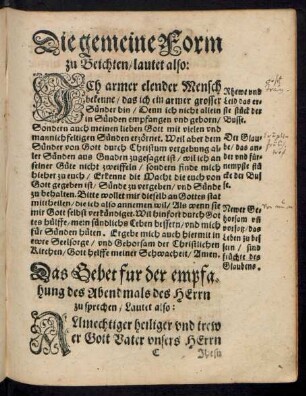 Die gemeine Form
zu Beichten/ lautet also:
ICh armer elender Mensch
bekenne/ das ich ein armer grosser
Sünder bin/ Denn ich nicht allein
in Sünden empfangen vnd geborn/
Sondern auch meinen lieben Gott mit vielen vnd
mannichfeltigen Sünden erzörnet. Weil aber dem
Sünder von Gott durch Christum vergebung al-
ler Sünden aus Gnaden zugesaget ist/ wil ich an
seiner Güte nicht zweiffeln/ sondern finde mich
hieher zu euch/ Erkenne die Macht die euch von
Gott gegeben ist/ Sünde zu vergeben/ vnd Sünde
zu behalten. Bitte wollet mir dieselb an Gottes stat
mittheilen/ die ich also annemen wil/ Als wenn sie
mir Gott selbst verkündiget. Wil hinfort durch Got
tes hülffe/ mein sündlichs Leben bessern/ vnd mich
für Sünden hüten. Ergebe mich auch hiermit in
ewre Seelsorge/ vnd Gehorsam der Christlichen
Kirchen/ Gott helffe meiner Schwacheit/ Amen.
Rhewe vnd
Leid das er-
ste stück der
Busse.
Der Glau-
be/ das an-
der vnd für-
nempste stü
cke der Bus
se.
Newer Ge
horsam vñ
vorsatz/ das
Leben zu bes
sern/ sind
früchte des
Glaubens.
Das Gebet fur der empfa-
hung des Abendmals des HErrn
zu sprechen/ Lautet also:
ALmechtiger heiliger vnd trew
er Gott Vater vnsers HErrn
C
Jhesu